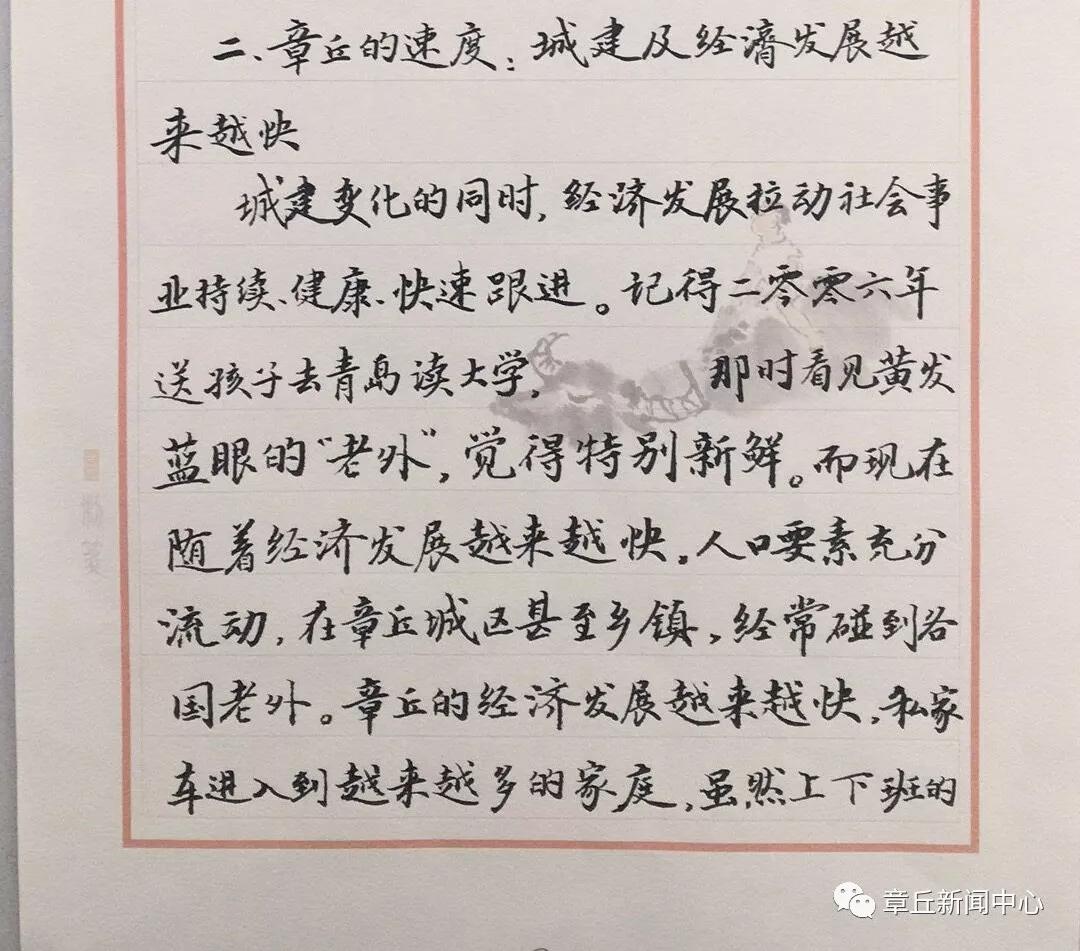 二、章丘的速度：城建及经濟发展越
来越快
城建变化的同时，经济发展拉动社会事
业持续、健康、快速跟进。记得二零零六年
送孩子去青岛读大学，那时看见黄发
蓝眼的“老外”，觉得特别新鲜。而现在
随着经济发展越来越快，人口要素充分
流动，在章丘城区甚至乡镇，经常碰到各
国老外。章丘的经济发展越来越快，私家
车进入到越来越多的家庭，虽然上下班的
章丘新闻中心